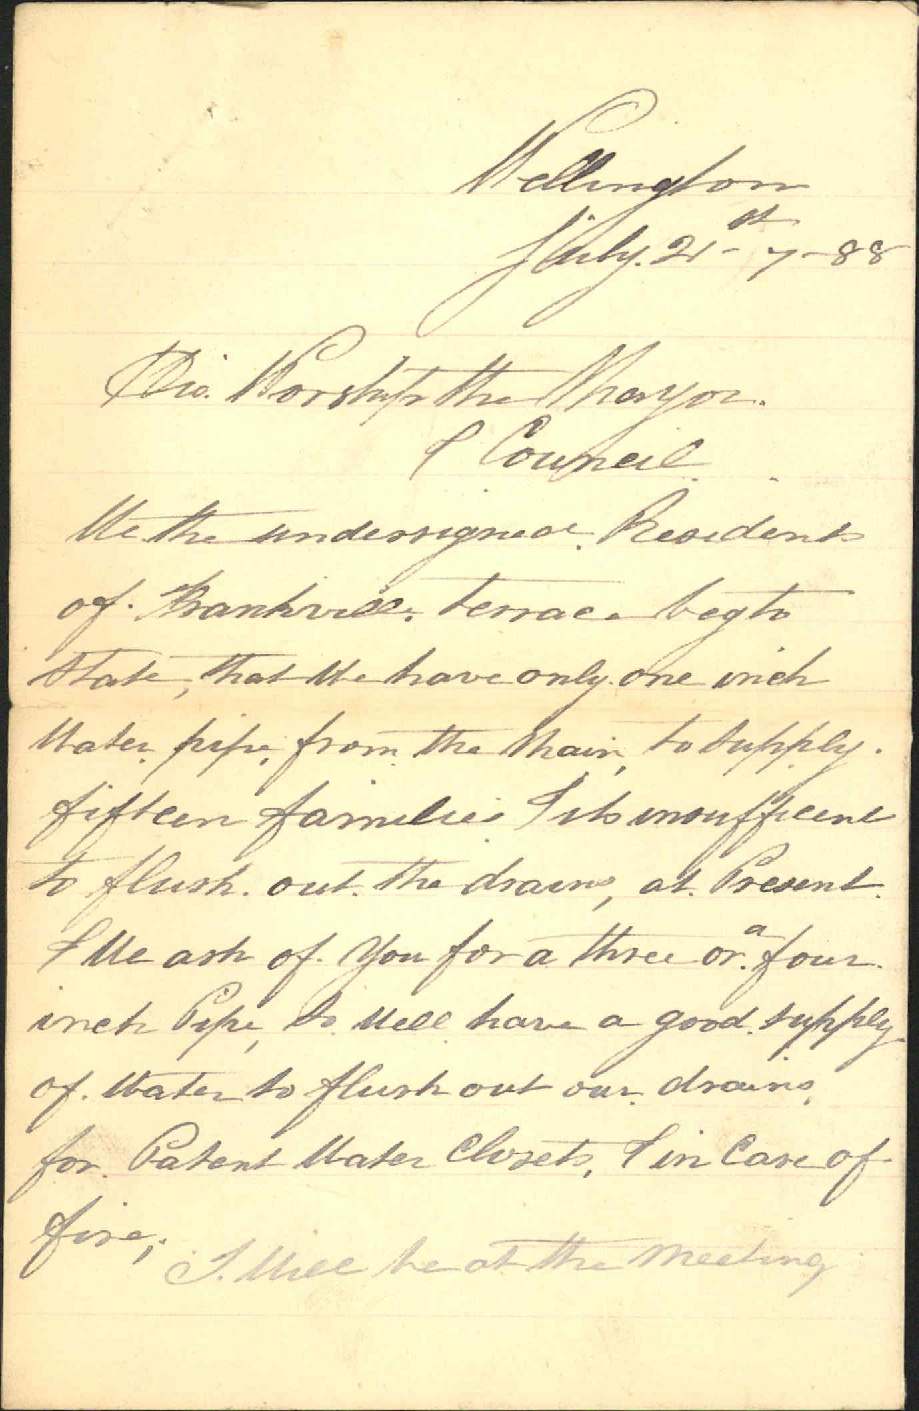 Wellington
July. 21st - 7 - 88
His. Worship the Mayor.
& Council
We the undersigned. Residents
of. Frankville. terrace beg to
State, that We have only one inch
Water pipe, from the Main, to Supply.
fifteen families & its insufficent
to flush. out. the drains, at. Present.
& We ask of. You for a three or. a four.
inch Pipe, to. Well have a good. supply
of. Water to flush out our. drains,
for. Patent Water Closets, & in Case of
fire;
I. Will be at the Meeting